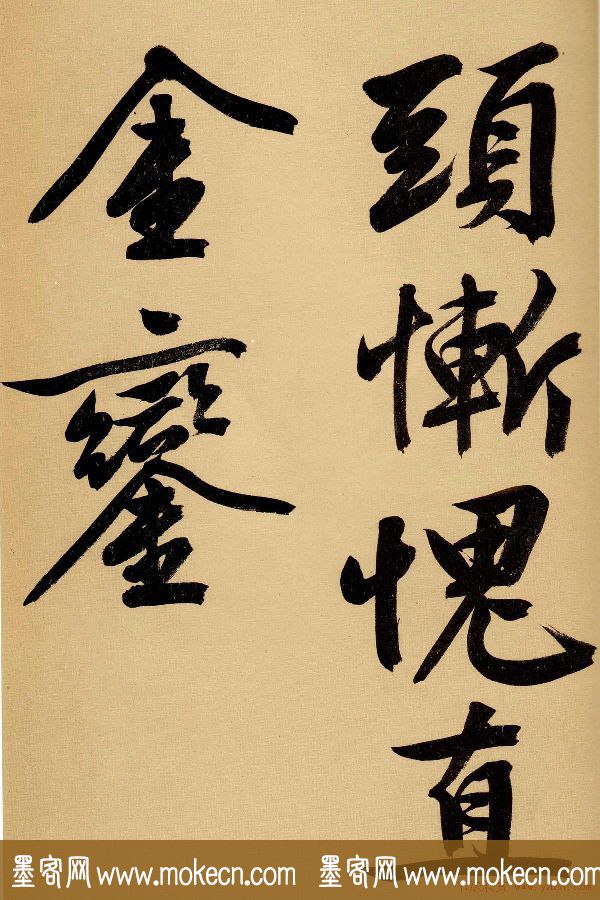 頭慚愧直
金鑾
墨客网 www.mokecn.com 墨客网 www.mokecn.com